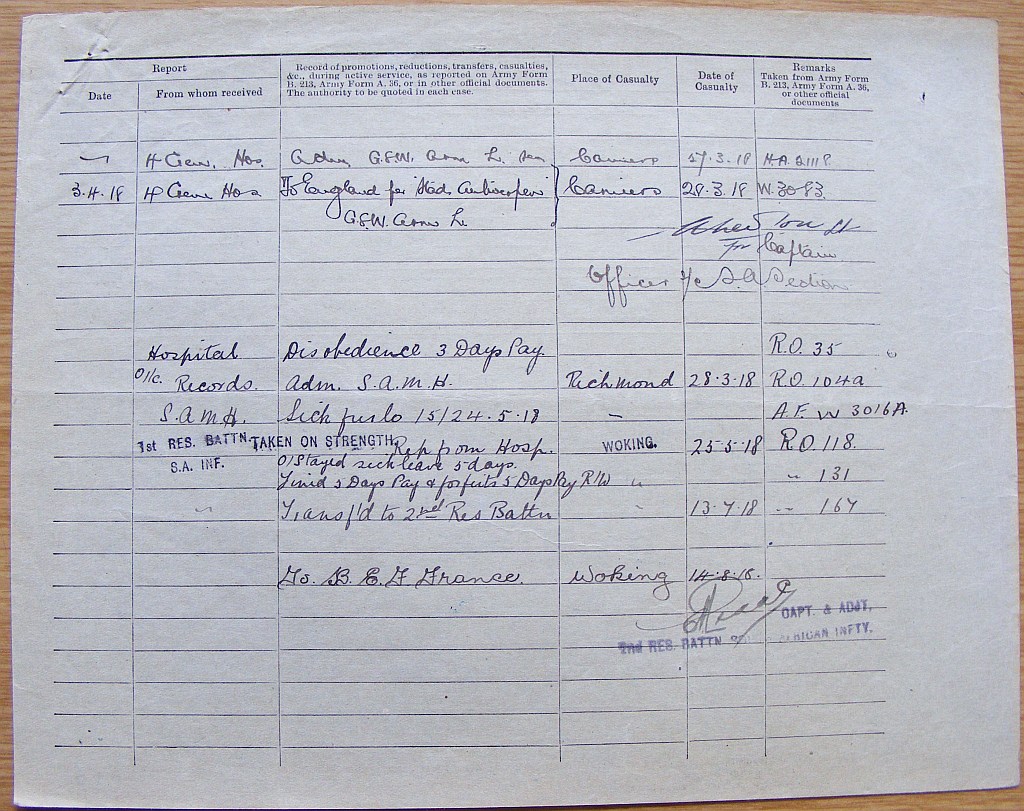 Report
Date
From whom received
Record of promotions, reductions, transfers, casualties,
&c., during active service, as reported on Army Form
B. 213, Army Form A. 36, or in other official documents.
The authority to be quoted in each case.
Place of Casualty
Date of
Casualty
Remarks
Taken from Army Form
B. 213, Army Form A. 36,
or other official
documents
4 Gen. Hos. Adm G.S.W. Arm L. Camiers 27.3.18 H.A. 2118
3.4.18 4 Gen Hos To England per Stad Antwerpen Camiers 28.3.18 W. 3083
G.S.W. Arm L.
Lt
For Captain
Officer i/c S.A Section
Hospital Disobedience 3 Days Pay. R.O. 35
O i/c. Records. Adm. S.A.M.H. Richmond 28-3-18 R.O. 104a
S.A.M.H. Sick furlo 15/24.5.18 — A.F. W 3016A.
1st RES. BATTN. TAKEN ON STRENGTH. Rep from Hosp. WOKING. 25-5-18 R.O. 118.
S.A. INF. O/Stayed sick leave 5 days.
Fined 5 Days Pay & forfeits 5 Days Pay R/W " " 131
" Transf'd to 2nd Res Battn " 13.7.18 " 167
To. B. E. F France. Woking 14.8.18.
CAPT. & ADJT,
2nd RES. BATTN AFRICAN INFTY.